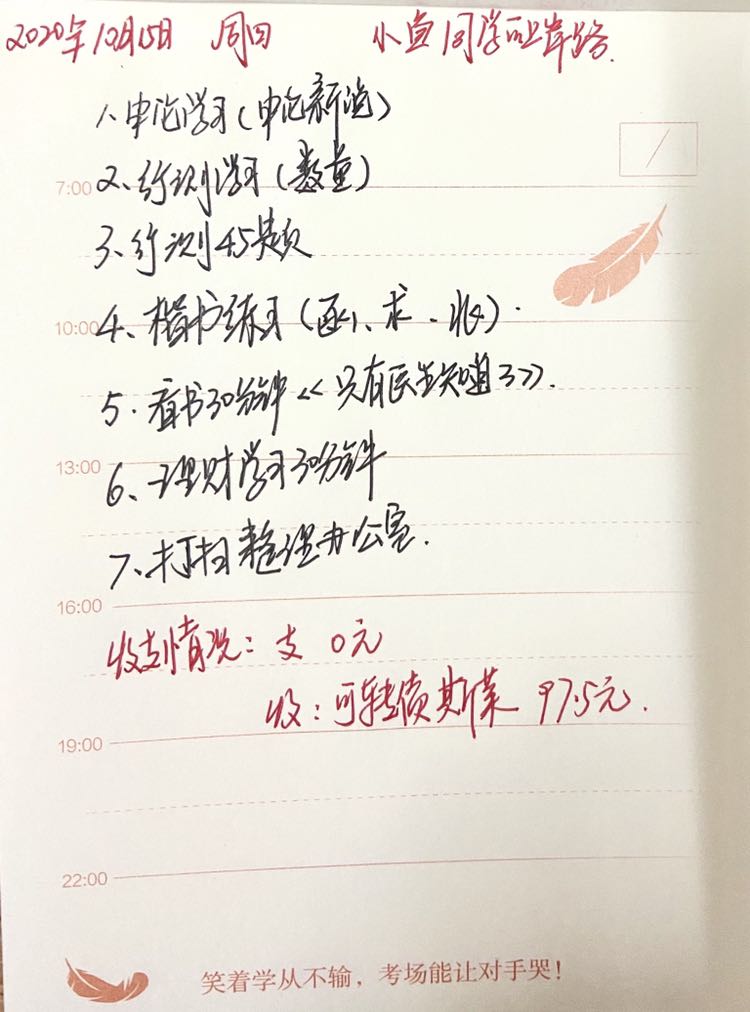 2020年10月15日 周四 小鱼同学的上岸路.
1、申论学习(申论新说)
7:00
2、行测学习(数量)
3、行测45题
10:00
4、楷书练习(函、求、状).
5.看书30分钟《只有医生知道3》.
13:00
6、理财学习30分钟
7、打扫整理办公室.
16:00
收支情况:支 0元
收:可转债 斯莱 975元.
19:00
22:00
笑着学从不输,考场能让对手哭!